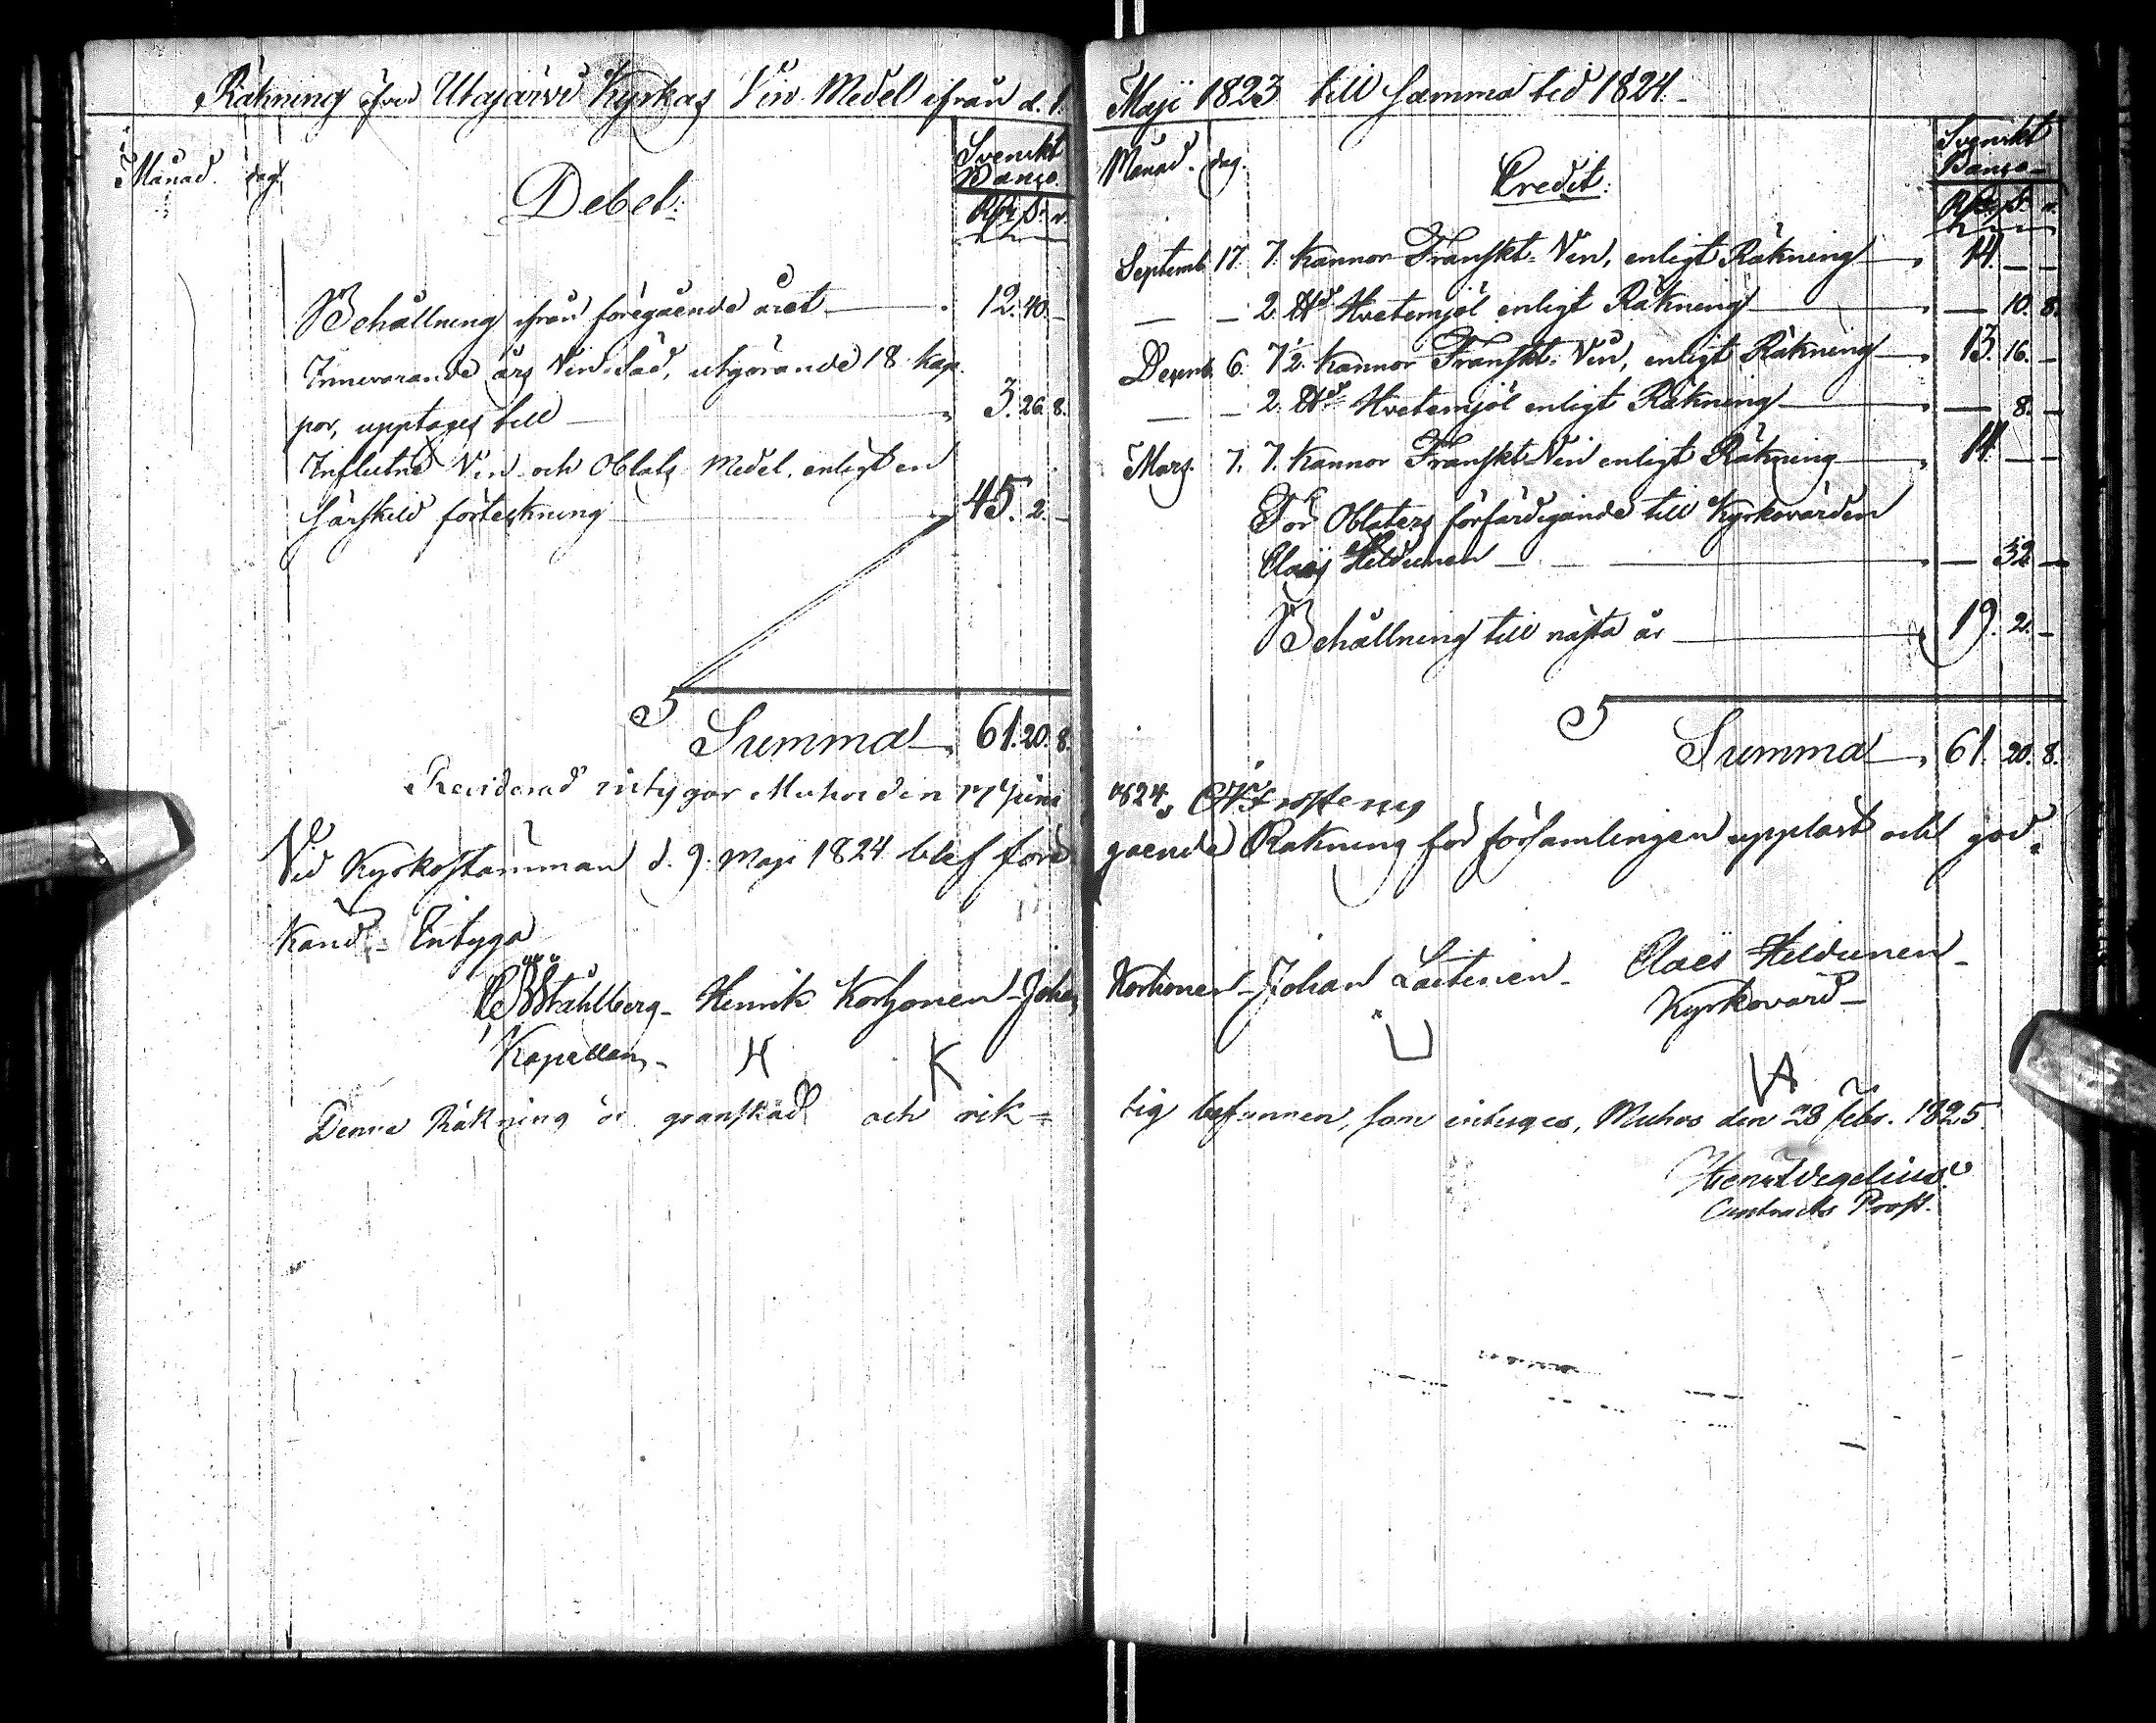 Räkning öfver Utajärvi Kyrkas Vin Medel ifrån d. 1.
Månad. dag.
Debet:
Svenskt
Banco.
Rdr ß. r.
Behållning ifrån föregående året 12. 40. –
Innevarande års Vin-Säd, utgörande 18 kap-
por, upptages till 3. 26. 8.
Influtne Vin och Oblats Medel, enligt en
särskild förteckning 45. 2. –
Summa 61. 20. 8.
Reviderad intygar Muhos den 17 Junii
Vid Kyrkostämman d. 9. Maji 1824 blef före
känd. Intyga
Ståhlberg – Henrik Korhonen – Johan
Kapellan –
H K
Denna Räkning är granskad och rik=
Maji 1823 till samma tid 1824.
Månad. dag.
Credit:
Svenskt
Banco
Rdr ß. r.
Septemb. 17. 7. Kannor Franskt Vin, enligt Räkning 14. – –
– – 2. ℔ Hvetemjöl enligt Räkning – 10. 8.
Decemb. 6. 7½. Kannor Franskt Vin, enligt Räkning 13. 16. –
– – 2. ℔ Hvetemjöl enligt Räkning – 8. –
Mars. 7. 7. Kannor Franskt Vin enligt Räkning 14. – –
För Oblaters förfärdigande till Kyrkovärden
Claës Heldunen – 32. –
Behållning till nästa år 19. 2. –
Summa 61. 20. 8.
1824.
gående Räkning för församlingen uppläst och god=
Korhonen – Johan Laitinen – Claës Heldunen –
Kyrkovärd –
tig befunnen, som intygas, Muhos den 28 Febr. 1825.
Henr Wegelius
Contracts Prost.